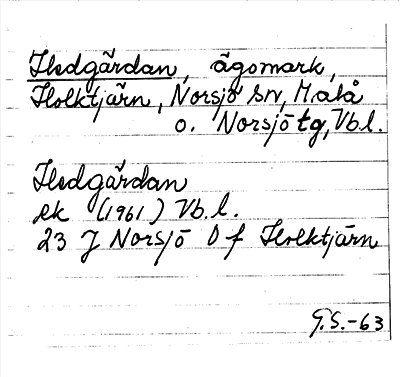 Hedgärdan, ägomark,
Holktjärn, Norsjö sn, Malå
o. Norsjö tg, Vb.l.
Hedgärdan
ek (1961) Vb.l.
23 J Norsjö 0 f Holktjärn
G.S.-63